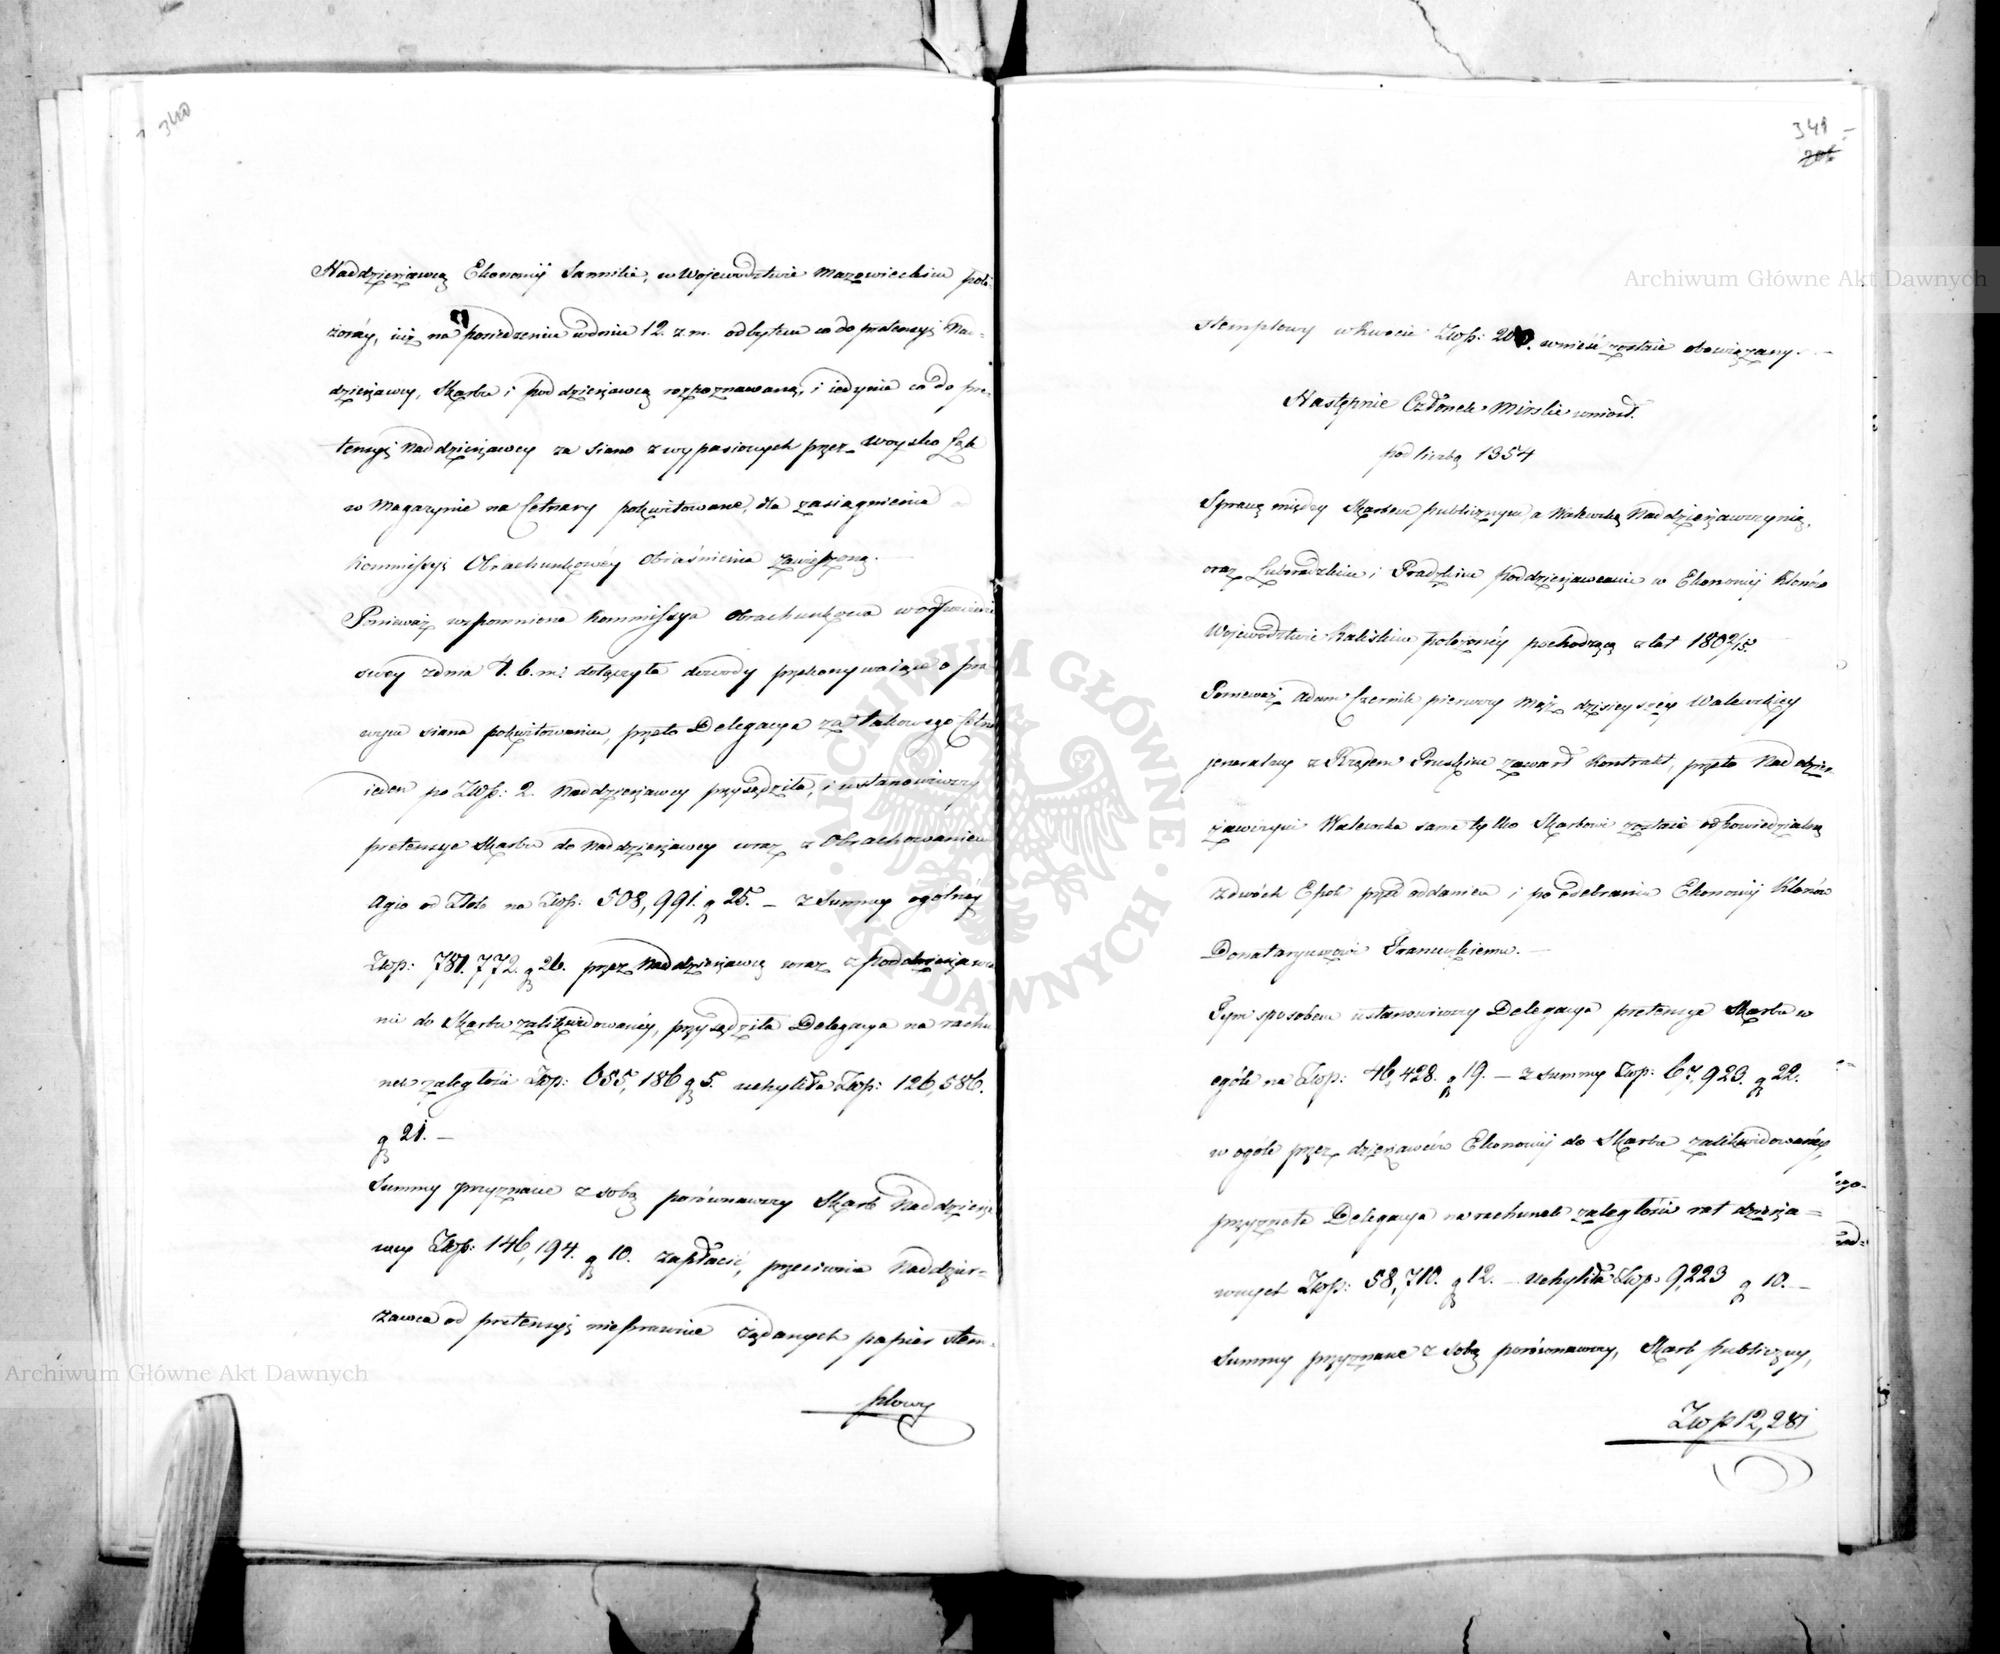 340
Naddzierżawcą Ekonomij Sannikie, w Województwie Mazowieckim poło-
żonéy, iuż na posiedzeniu w dniu 12. z. m. odbytem co do pretensyi Nad-
dzierżawcy, Skarbu i poddzierżawcą rozpoznawaną, i iedynie co do pre-
tensyi Naddzierżawcy za siano z wypasionych przez woysko Łąk
w Magazynie na Cetnary pokwitowane, dla zasiągnienia
Kommissyi Obrachunkowéy obiaśnienia zawieszoną.
Ponieważ wspomniona Kommissya Obrachunkowa w odezwie
swey z dnia 1. b. m. dołączyła dowody przekonywaiące o pra-
wym siana pokwitowaniu, przeto Delegacya za takowego Cetnar
ieden po Złp: 2. Naddzierżawcy przysądziła, i ustanowiwszy
pretensye Skarbu do Naddzierżawcy wraz z Obrachowaniem
Agio od Złota na Złp: 508,991. g 25. – z Summy ogólnéy
Złp: 781,772. g 26. przez Naddzierżawcę wraz z poddzierżawca
mi do Skarbu zalikwidowanéy, przysądziła Delegacya na rachu
nek zaległości Złp: 655,186 g 5. uchyliła Złp: 126,586.
g 21. –
Summy przyznane z sobą porównawszy Skarb Naddzierża
wcy Złp: 146,194. g 10. zapłacić, przeciwnie Naddzier-
żawca od pretensyi nieprawnie żądanych papier stem-
plowy
341
206
stemplowy w kwocie Złp: 200. wnieść zostaie obowiązany.
Następnie Członek Mirski wniosł.
pod liczbą 1354
Sprawę między Skarbem publicznym a Walewską Naddzierżawczynią,
oraz Luboradzkim i Pradzkim poddzierżawcami w Ekonomij Klonów
Województwie Kaliskim położonéy pochodzącą z lat 180 2/15.
Ponieważ Adam Czernik pierwszy Mąż dzisieyszéy Walewskiéy
jeneralny z Rządem Pruskim zawarł Kontrakt, przeto Naddzier-
żawczyni Walewska sama tylko Skarbowi zostaie odpowiedzialną
z dwóch Epok przed oddaniem i po odebraniu Ekonomij Klonów
Donataryuszowi Francuzkiemu. –
Tym sposobem ustanowiwszy Delegacya pretensye Skarbu w
ogóle na Złp: 46,428. g 19. – z Summy Złp: 67,923. g 22.
w ogóle przez dzierżawców Ekonomij do Skarbu zalikwidowanéy,
przyznała Delegacya na rachunek zaległości rat dzierża=
wnych Złp: 58,710. g 12. – uchyliła Złp: 9,223 g 10. –
Summy przyznane z sobą porównawszy, Skarb publiczny,
Złp 12,281